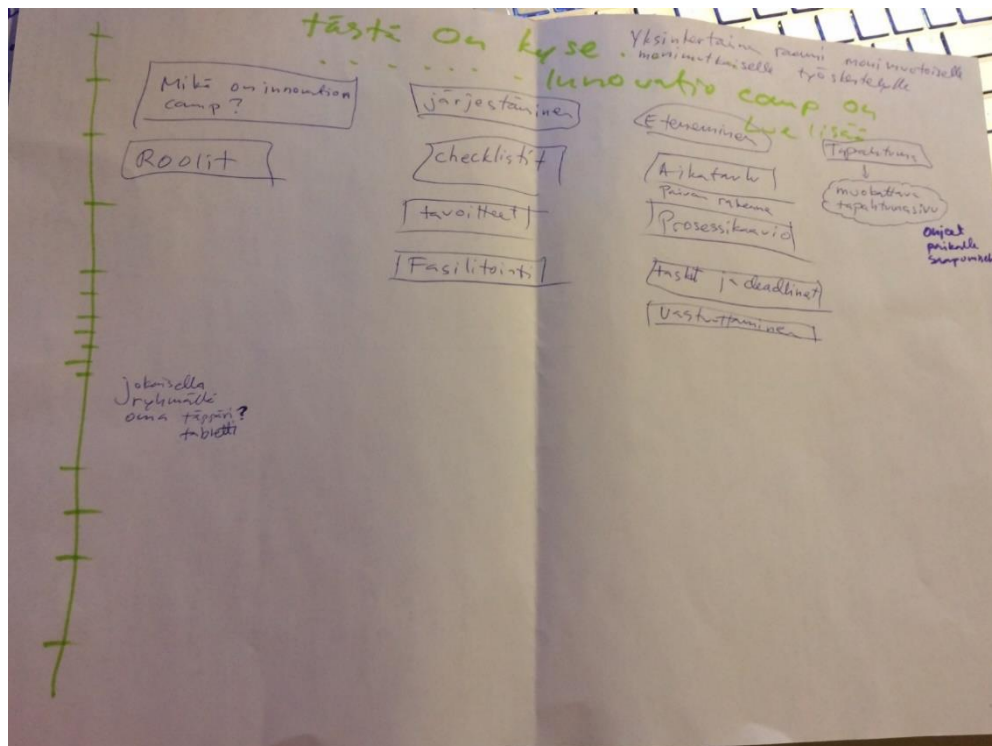 tästä on kyse.
Yksinkertainen raami monimuotoiselle
monimutkaiselle työskentelylle
Innovatio camp on
Lue lisää
Mikä on innovation
camp?
Roolit
järjestäminen
checklistit
tavoitteet
Fasilitointi
Eteneminen
Aikataulu
päivän rakenne
Prosessikaavio
taskit ja deadlinet
Vastuuttaminen
Tapahtuma
muokattava
tapahtumasivu
ohjeet
paikalle
saapumiseen
jokaisella
ryhmällä
oma täppäri?
tabletti